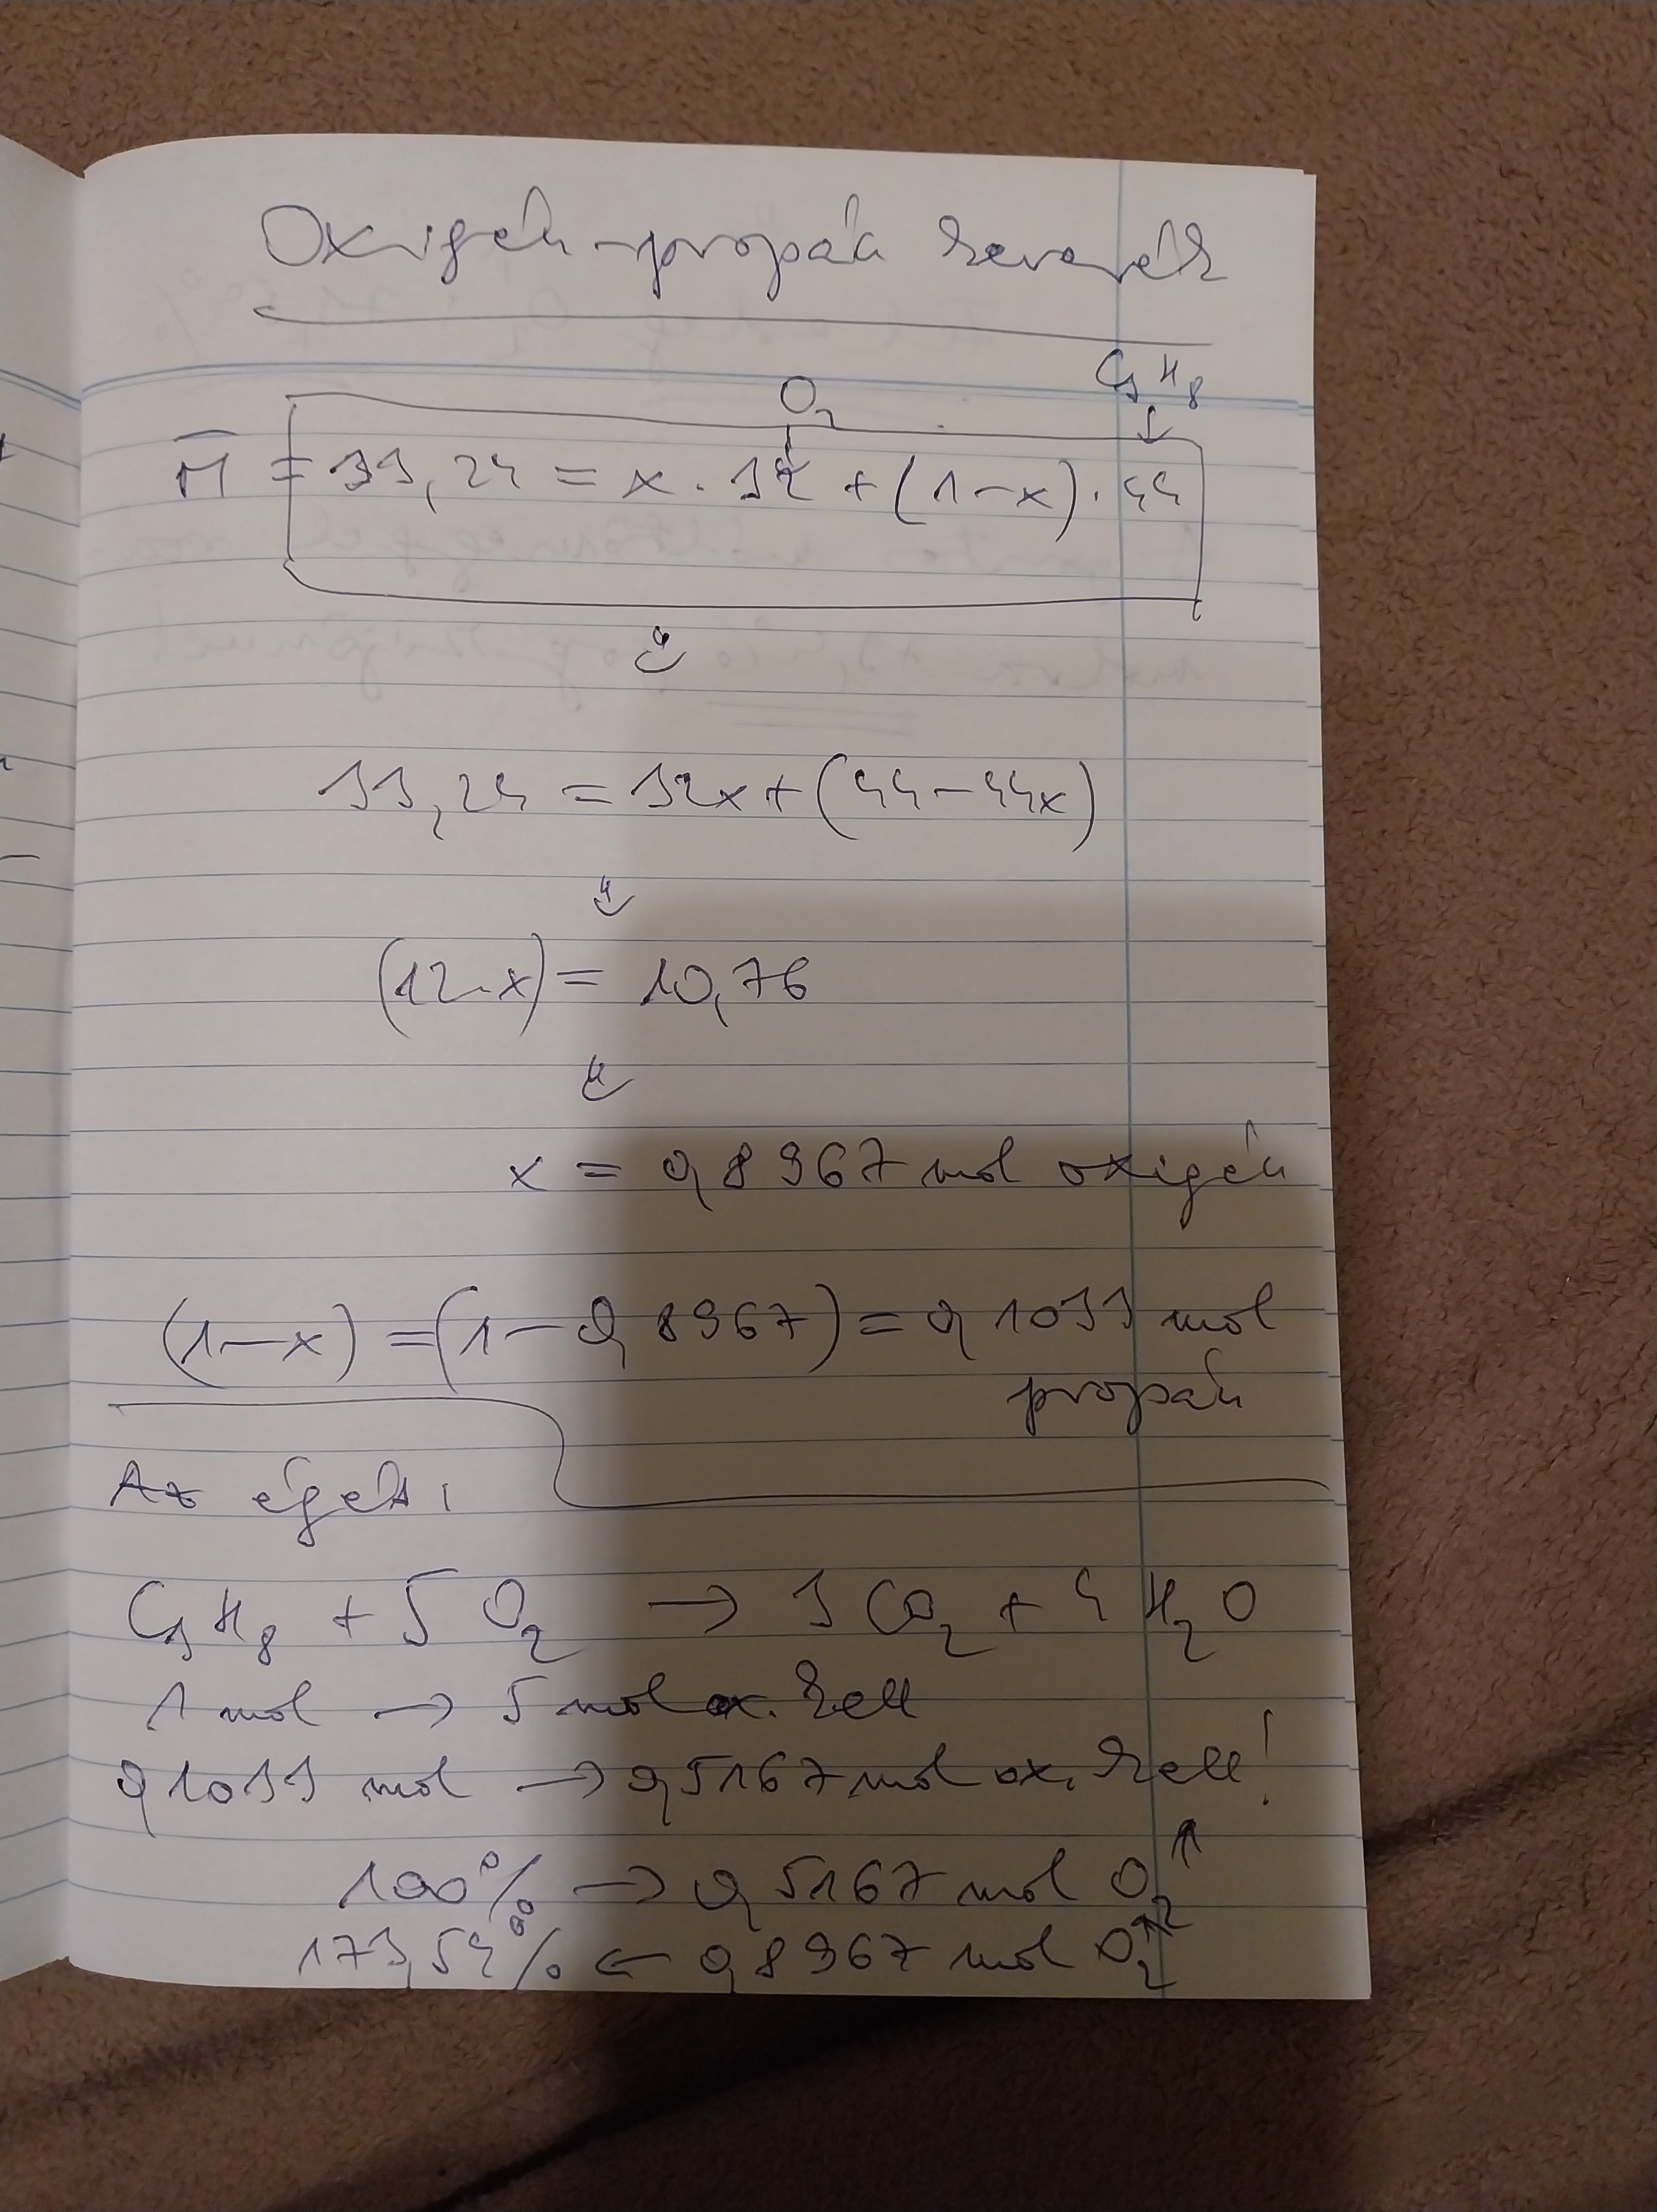 Oxigén-propán keverék
O₂ C₃H₈
M̅ = 33,24 = x · 32 + (1-x) · 44
33,24 = 32x + (44-44x)
(12·x) = 10,76
x = 0,8967 mol oxigén
(1-x) = (1-0,8967) = 0,1033 mol
propán
Az égés:
C₃H₈ + 5 O₂ → 3 CO₂ + 4 H₂O
1 mol → 5 mol ox. kell
0,1033 mol → 0,5167 mol ox. kell!
100% → 0,5167 mol O₂
173,54% ← 0,8967 mol O₂